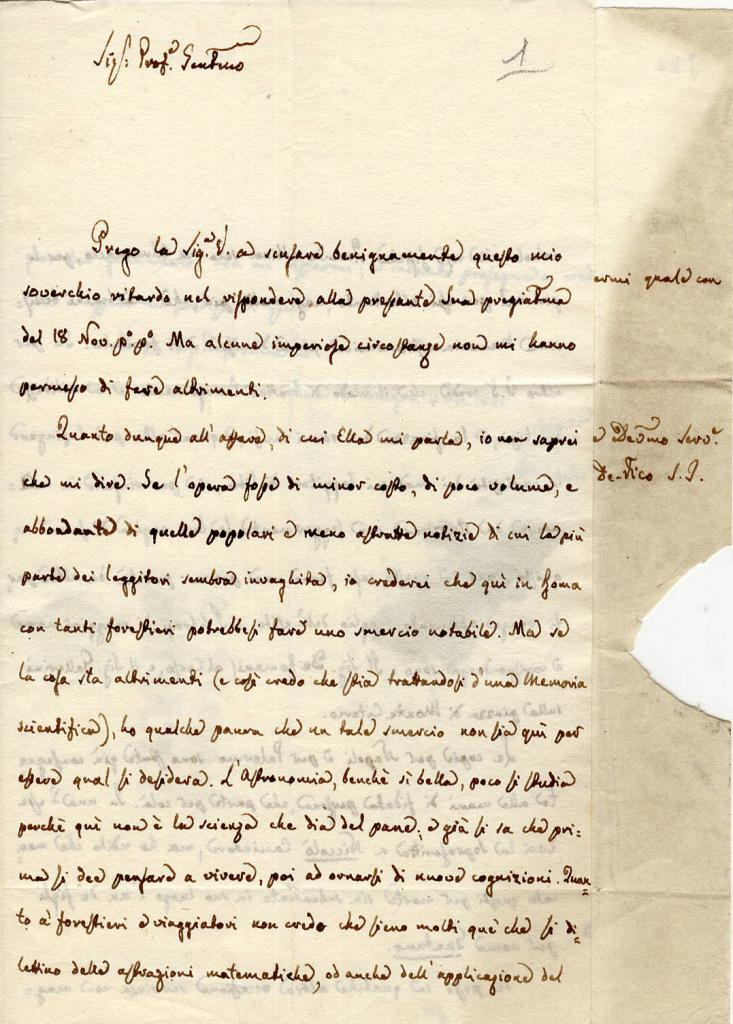 Sigʳ: Profᵉ. Gentmo
1
Prego la Sigᵃ. V. a scusare benignamente questo mio
soverchio ritardo nel rispondere alla pressante Sua pregiatma
del 18 Nov. p.º p.º Ma alcune imperiose circostanze non mi hanno
permesso di fare altrimenti.
Quanto dunque all' affare, di cui Ella mi parla, io non saprei
che mi dire. Se l'opera fosse di minor costo, di poco volume, e
abbondante di quelle popolari e meno astratte notizie di cui la più
parte dei leggitori sembra invaghita, io crederei che quì in Roma
con tanti forestieri potrebbesi fare uno smercio notabile. Ma se
la cosa sta altrimenti (e così credo che stia trattandosi d'una Memoria
scientifica), ho qualche paura che un tale smercio non sia quì per
essere qual si desidera. L'Astronomia, benchè sì bella, poco si studia
perchè quì non è la scienza che dia del pane: e già si sa che pri=
ma si dee pensare a vivere, poi ad ornarsi di nuove cognizioni. Quan=
to a' forestieri e viaggiatori non credo che sieno molti que' che si di=
lettino delle astrazioni matematiche, od anche dell'applicazione del
ermi quale con
e Devmo Servᵉ.
De-Vico S.J.